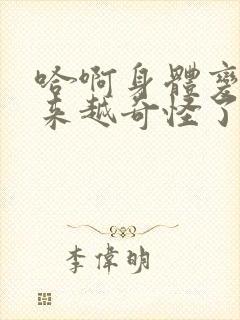 哈啊身體变
来越奇怪了
李偉明